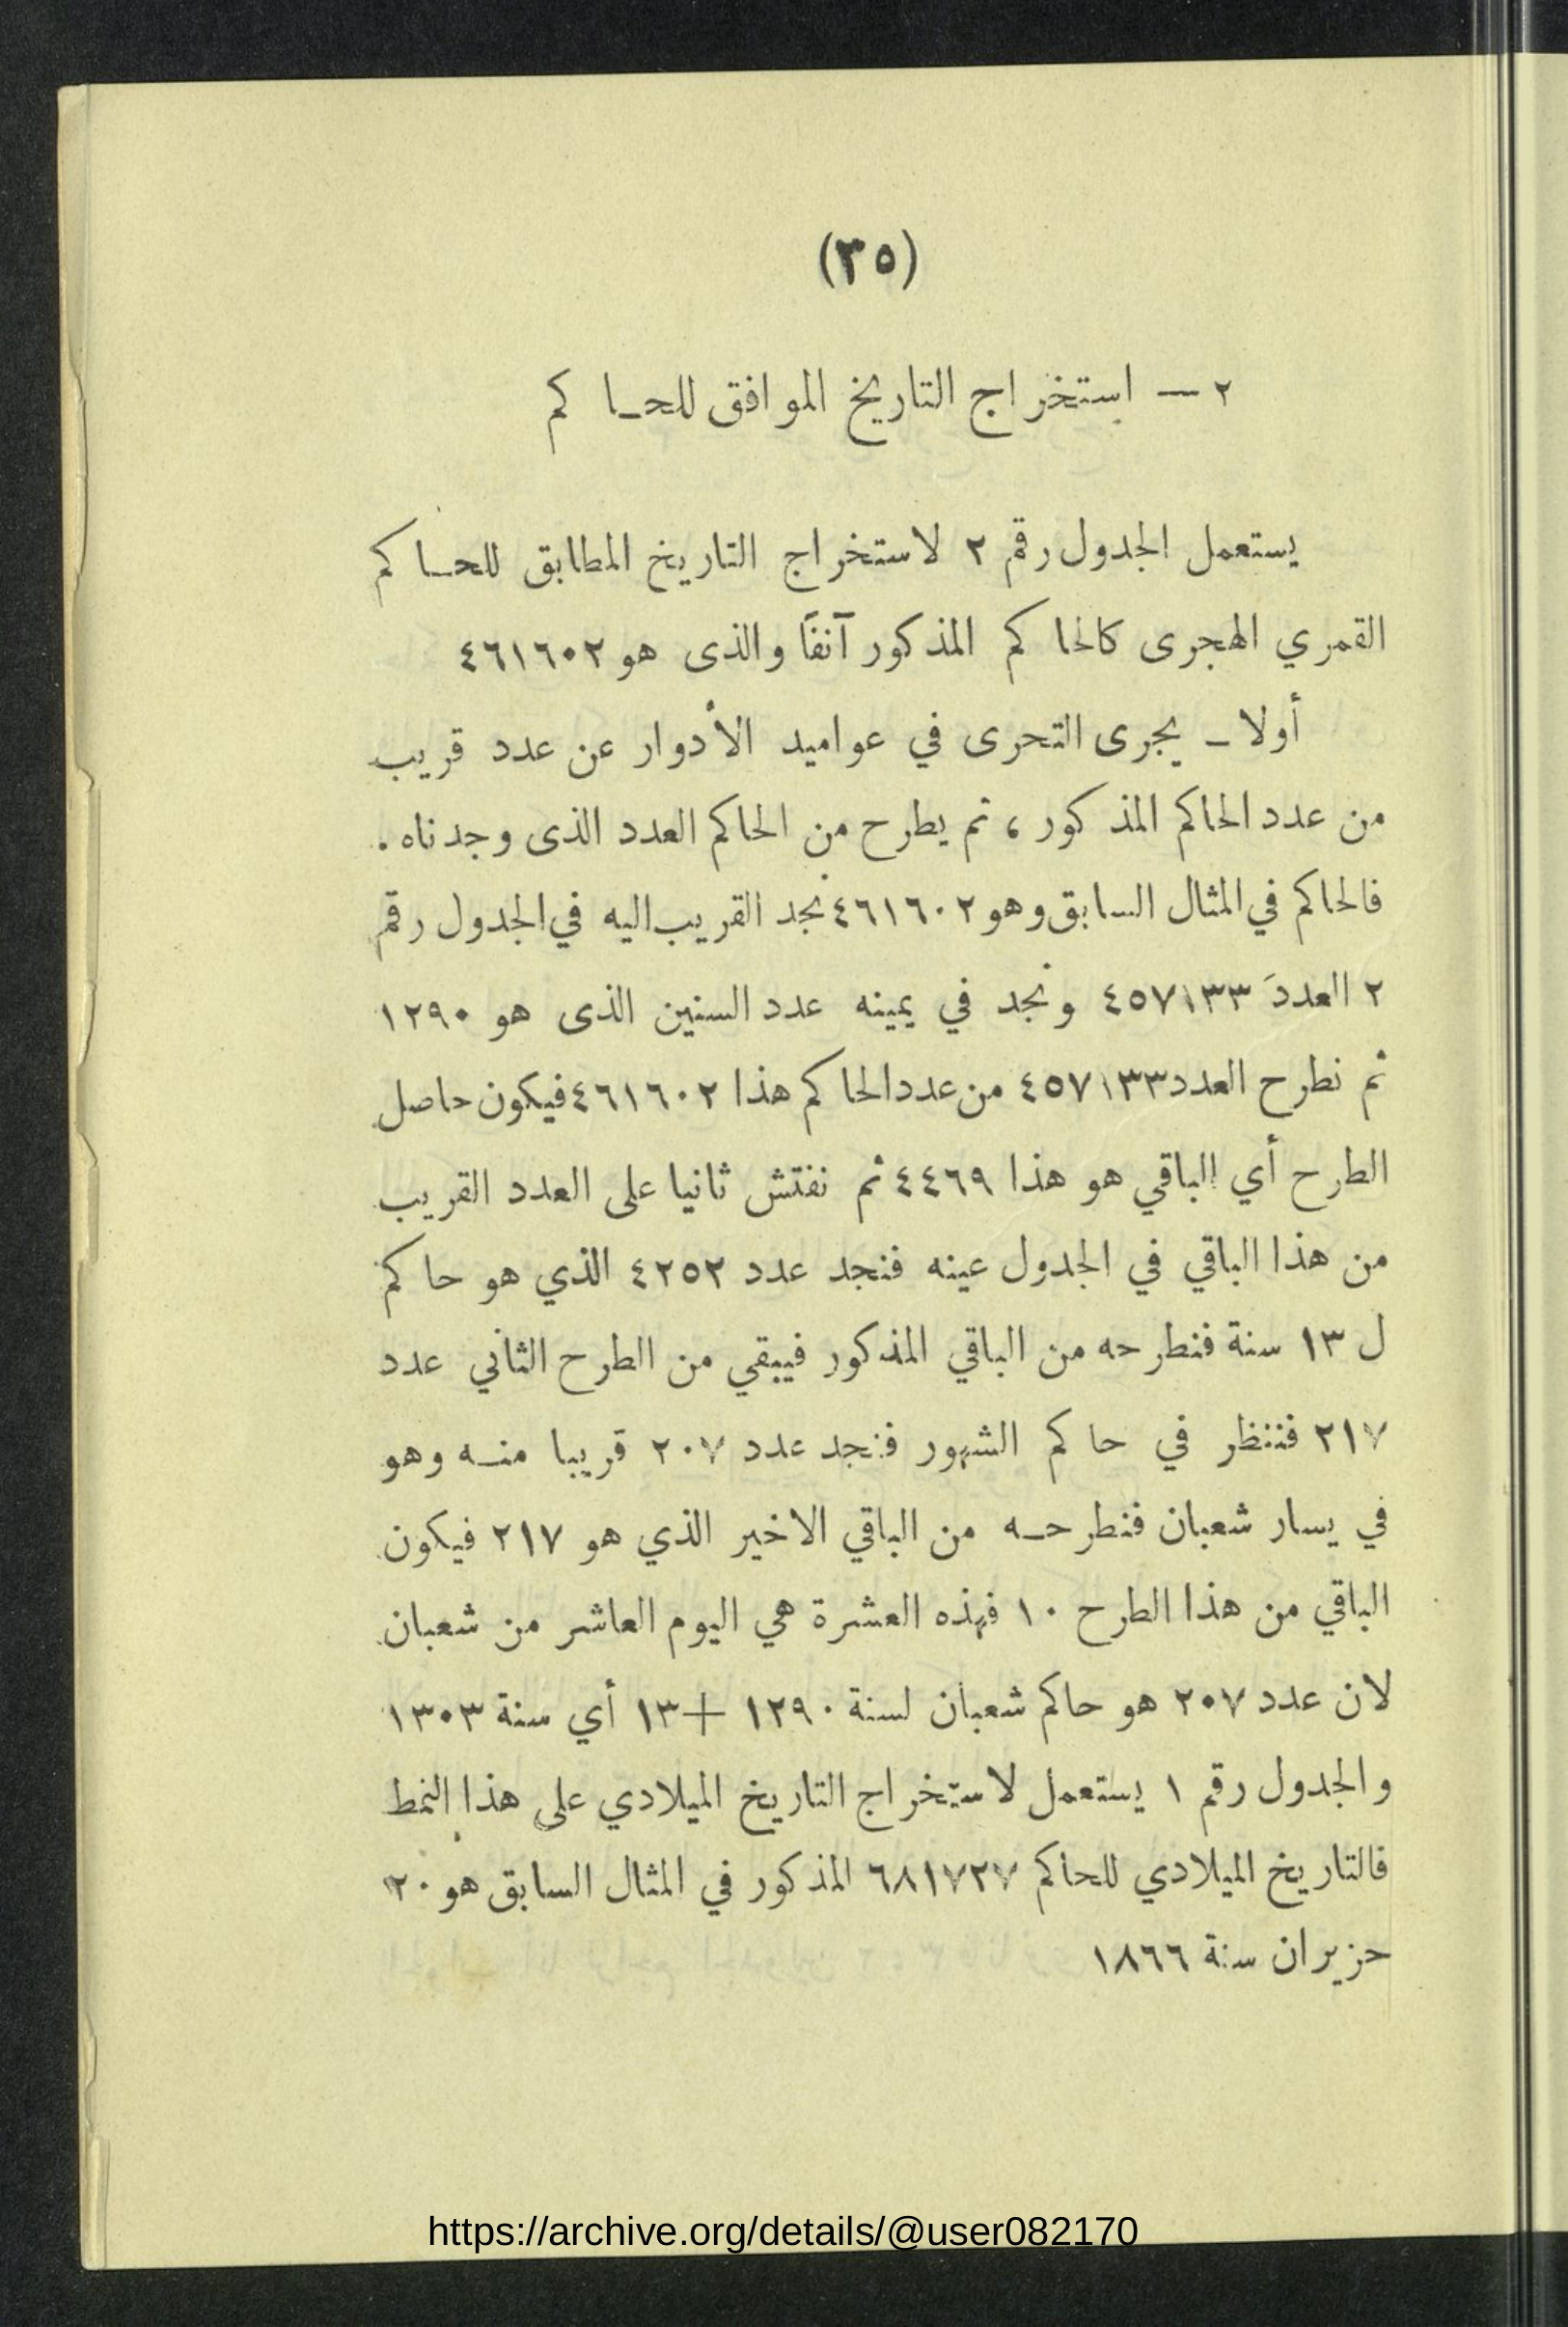 (٣٥)
٢ — استخراج التاريخ الموافق للحاكم
يستعمل الجدول رقم ٢ لاستخراج التاريخ المطابق للحاكم
القمري الهجرى كالحاكم المذكور آنفاً والذى هو ٤٦١٦٠٢
أولا – يجرى التحرى في عواميد الأدوار عن عدد قريب
من عدد الحاكم المذكور ، ثم يطرح من الحاكم العدد الذى وجدناه .
فالحاكم في المثال السابق وهو ٤٦١٦٠٢ نجد القريب اليه في الجدول رقم
٢ العددَ ٤٥٧١٣٣ ونجد في يمينه عدد السنين الذى هو ١٢٩٠
ثم نطرح العدد ٤٥٧١٣٣ من عدد الحاكم هذا ٤٦١٦٠٢ فيكون حاصل
الطرح أي الباقي هو هذا ٤٤٦٩ ثم نفتش ثانيا على العدد القريب
من هذا الباقي في الجدول عينه فنجد عدد ٤٢٥٢ الذي هو حاكم
ل ١٣ سنة فنطرحه من الباقي المذكور فيبقي من الطرح الثاني عدد
٢١٧ فننظر في حاكم الشهور فنجد عدد ٢٠٧ قريبا منه وهو
في يسار شعبان فنطرحه من الباقي الاخير الذي هو ٢١٧ فيكون
الباقي من هذا الطرح ١٠ فهذه العشرة هي اليوم العاشر من شعبان
لان عدد ٢٠٧ هو حاكم شعبان لسنة ١٢٩٠ + ١٣ أي سنة ١٣٠٣
والجدول رقم ١ يستعمل لاستخراج التاريخ الميلادي على هذا النمط
فالتاريخ الميلادي للحاكم ٦٨١٧٢٧ المذكور في المثال السابق هو ٢٠
حزيران سنة ١٨٦٦
https://archive.org/details/@user082170